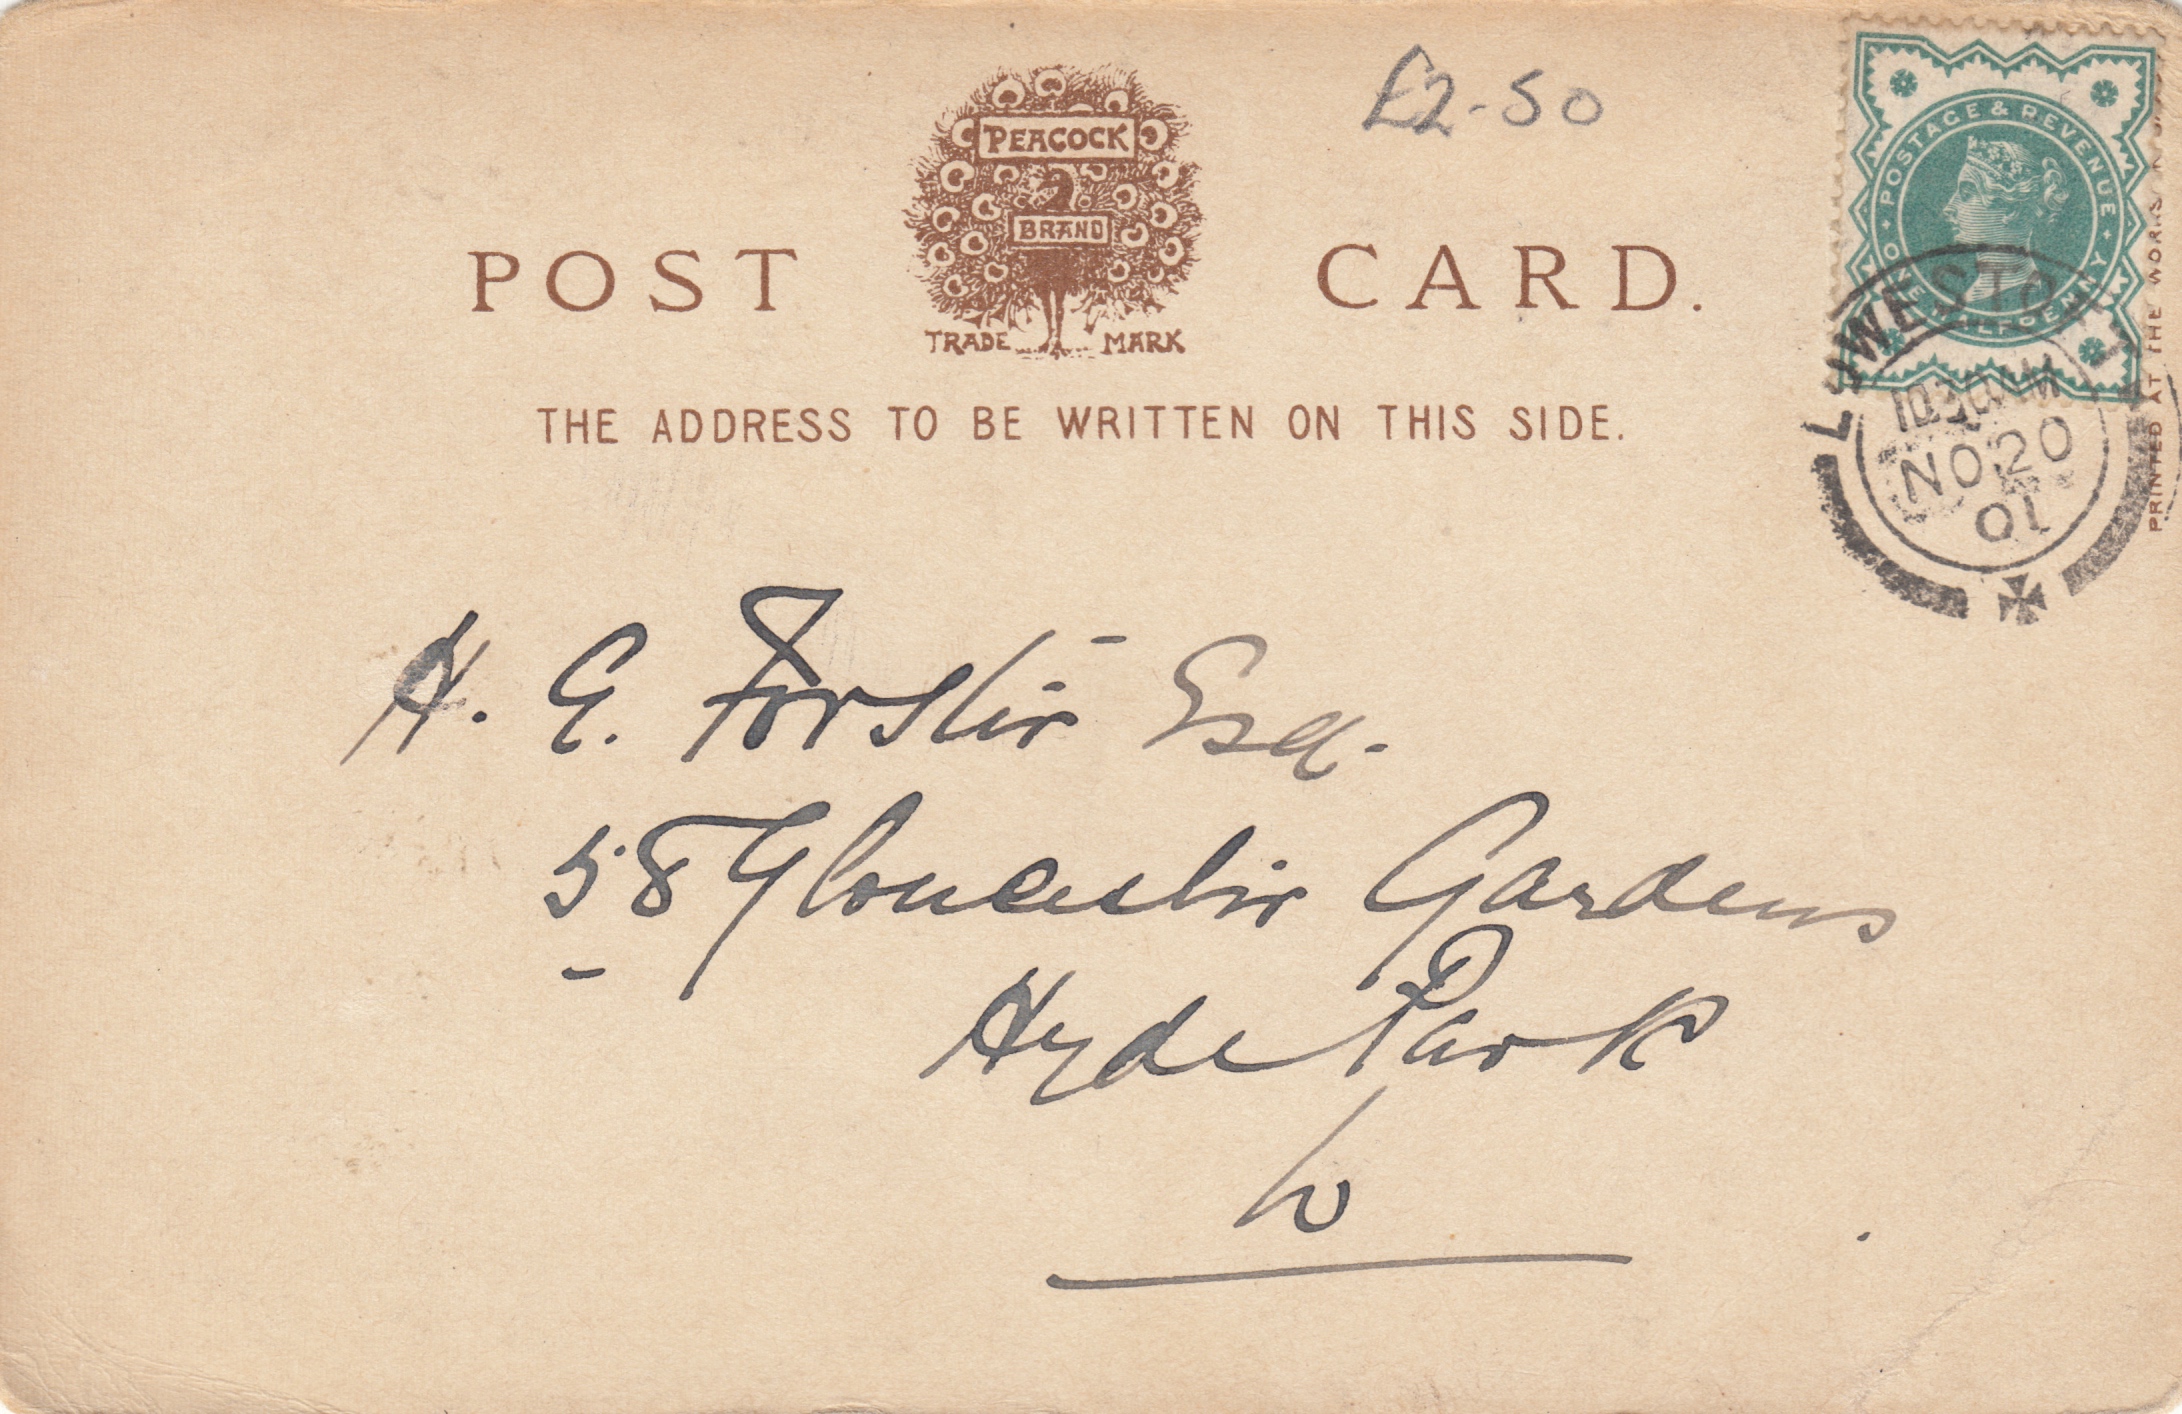 £2-50
PEACOCK
BRAND
POST CARD.
TRADE MARK
THE ADDRESS TO BE WRITTEN ON THIS SIDE.
POSTAGE & REVENUE
ONE HALFPENNY
LOWESTOFT
NO 20
01
PRINTED AT THE WORKS
H. E. Forster Esq.
58 Gloucester Gardens
Hyde Park
W